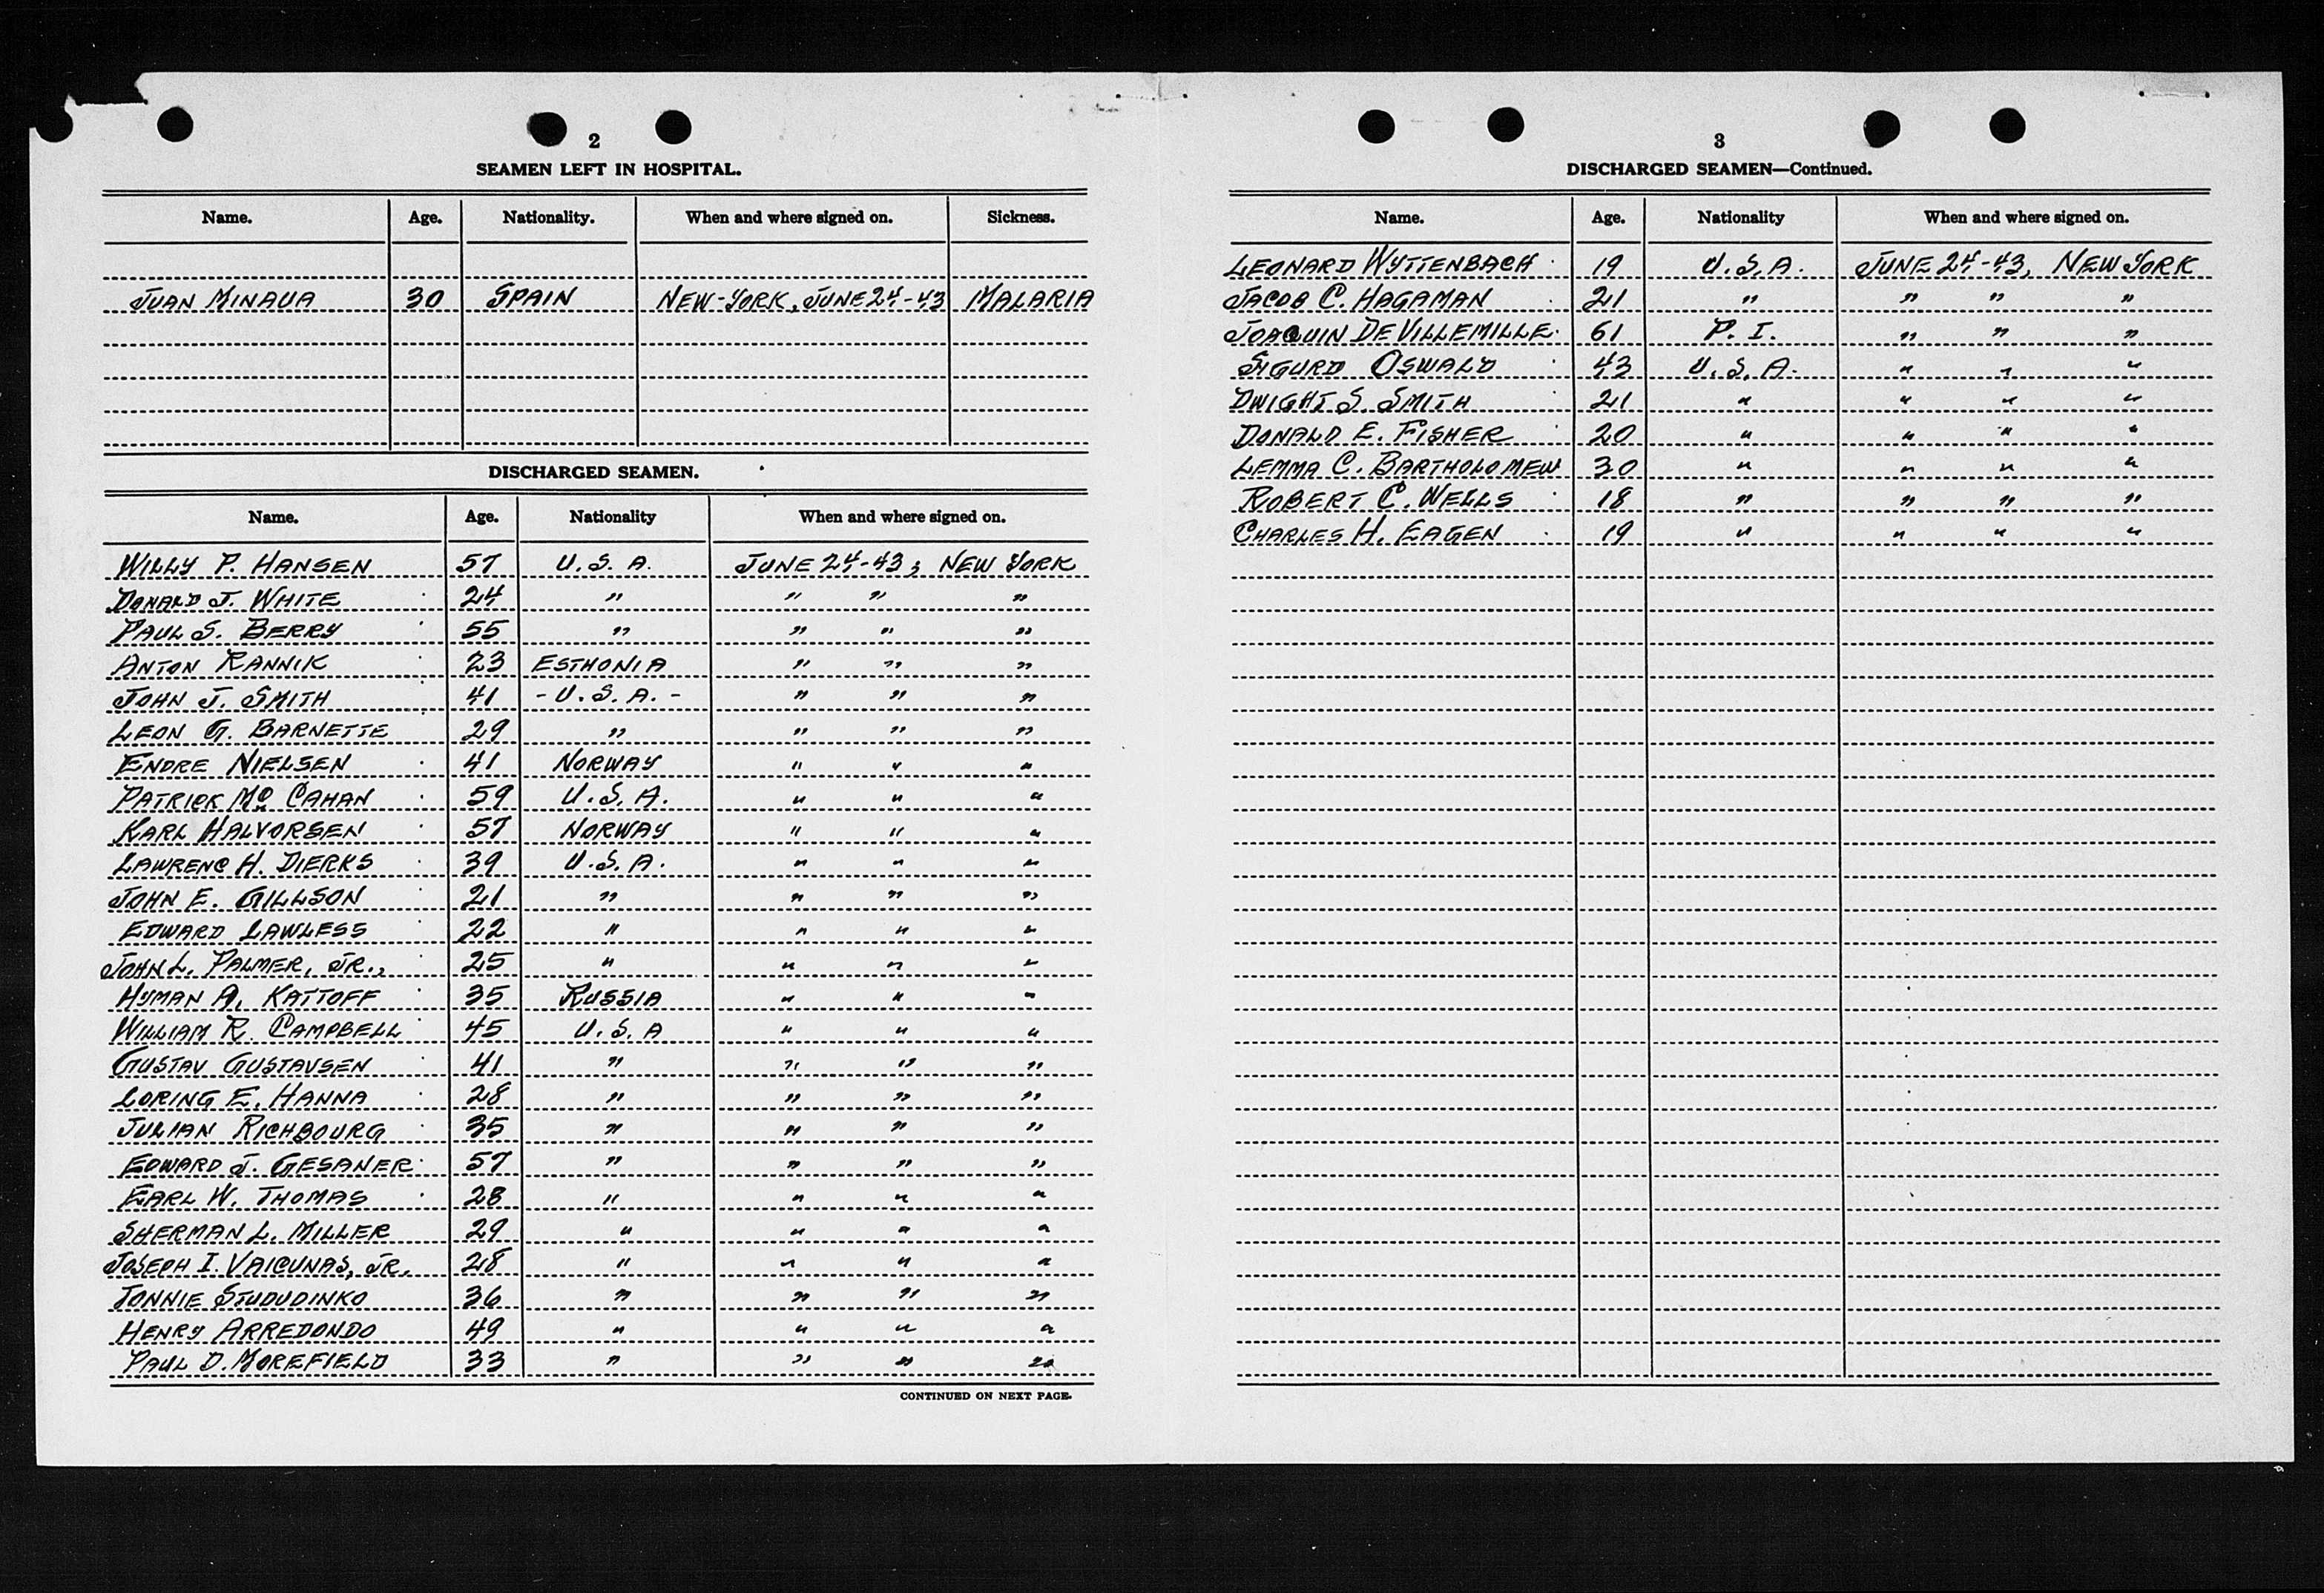 2
SEAMEN LEFT IN HOSPITAL.
Name. Age. Nationality. When and where signed on. Sickness.
JUAN MINAUA 30 SPAIN NEW-YORK, JUNE 24-43 MALARIA
DISCHARGED SEAMEN.
Name. Age. Nationality When and where signed on.
WILLY P. HANSEN 57 U.S.A. JUNE 24-43; NEW YORK
DONALD J. WHITE 24 " " " "
PAUL S. BERRY 55 " " " "
ANTON RANNIK 23 ESTHONIA " " "
JOHN J. SMITH 41 - U.S.A. - " " "
LEON G. BARNETTE 29 " " " "
ENDRE NIELSEN 41 NORWAY " " "
PATRICK Mc CAHAN 59 U.S.A. " " "
KARL HALVORSEN 57 NORWAY " " "
LAWRENC H. DIERKS 39 U.S.A. " " "
JOHN E. GILLSON 21 " " " "
EDWARD LAWLESS 22 " " " "
JOHN L. PALMER, JR., 25 " " " "
HYMAN A. KATTOFF 35 RUSSIA " " "
WILLIAM R. CAMPBELL 45 U.S.A " " "
GUSTAV GUSTAVSEN 41 " " " "
LORING E. HANNA 28 " " " "
JULIAN RICHBOURG 35 " " " "
EDWARD J. GESANER 57 " " " "
EARL W. THOMAS 28 " " " "
SHERMAN L. MILLER 29 " " " "
JOSEPH I. VAICUNAS, JR. 28 " " " "
TONNIE STUDUDINKO 36 " " " "
HENRY ARREDONDO 49 " " " "
PAUL D. MOREFIELD 33 " " " "
CONTINUED ON NEXT PAGE.
3
DISCHARGED SEAMEN—Continued.
Name. Age. Nationality When and where signed on.
LEONARD WYTTENBACH 19 U.S.A. JUNE 24-43, NEW YORK
JACOB C. HAGAMAN 21 " " " "
JOAQUIN DE VILLEMILLE 61 P. I. " " "
SIGURD OSWALD 43 U.S.A. " " "
DWIGHT S. SMITH 21 " " " "
DONALD E. FISHER 20 " " " "
LEMMA C. BARTHOLOMEW 30 " " " "
ROBERT C. WELLS 18 " " " "
CHARLES H. EAGEN 19 " " " "